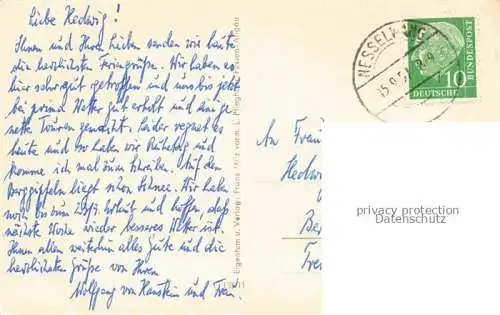 Liebe Hedwig!
Ihnen und Ihren Lieben senden wir heute
die herzlichsten Feriengrüße. Wir haben es
hier sehr gut getroffen und uns bis jetzt
bei prima Wetter gut erholt und einige
nette Touren gemacht. Leider regnet es
heute und so haben wir Ruhetag und
komme ich mal zum Schreiben. Auf den
Berggipfeln liegt schon Schnee. Wir haben
noch bis zum Urlaub und hoffen, daß
nächste Woche wieder besseres Wetter ist.
Ihnen allen weiterhin alles Gute und die
herzlichsten Grüße von Ihrem
Wolfgang von Hanstein und Frau.
Eigentum u. Verlag: Franz Milz vorm. L.
NESSELWANG
15.9.5
10
DEUTSCHE
BUNDESPOST
An Frau
Hedw
Be
Fre
privacy protection
Datenschutz